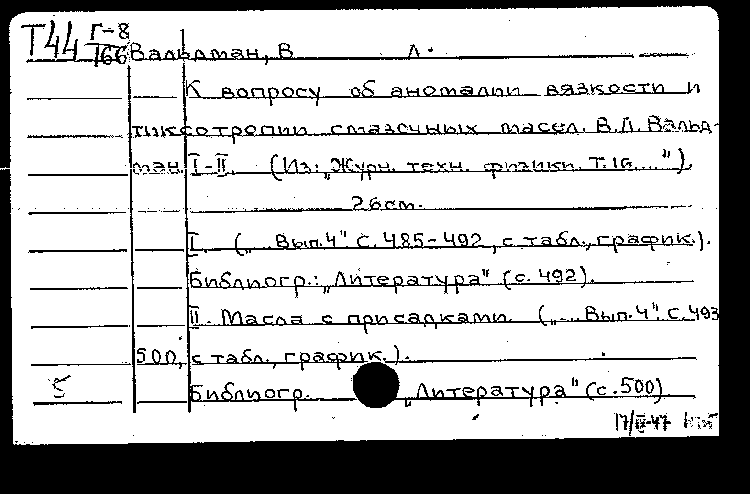 Т44 Г-8
166 Вальдман, В Л.
К вопросу об аномалии вязкости и
тиксотропии смазочных масел. В.Л. Вальд-
ман. I-II. (Из: „Журн. техн. физики. Т. 16...").
26см.
I. („... Вып. 4" С. 485-492, с табл., график.).
Библиогр.: „Литература" (с. 492).
II. Масла с присадками. („... Вып. 4". С. 493
500, с табл., график.).
Библиогр. „Литература" (с. 500)
17/III-47